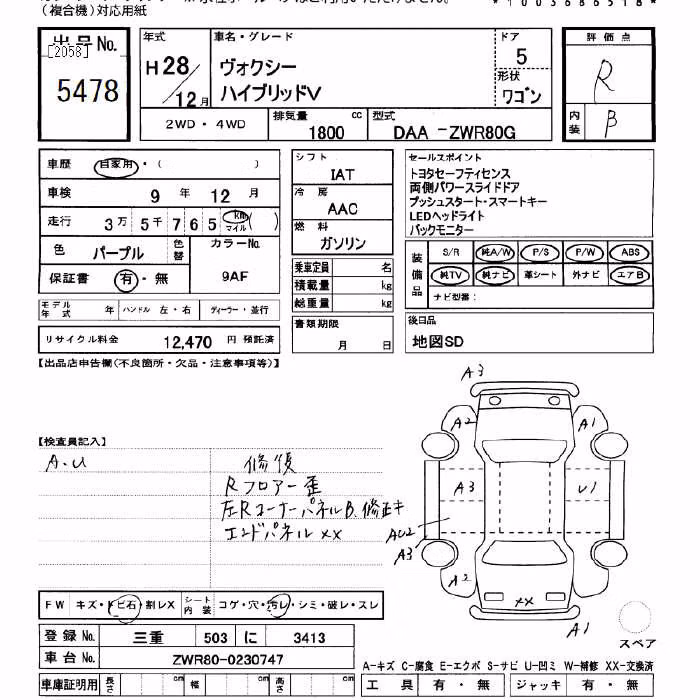 (複合機)対応用紙
出品No.
[2058]
5478
年式
H28/12月
車名・グレード
ヴォクシー
ハイブリッドV
ドア
5
形状
ワゴン
評価点
R
内装
B
2WD・4WD
排気量
1800 cc
型式
DAA -ZWR80G
車歴 自家用・( )
車検 9年 12月
走行 3万 5千 7 6 5 km マイル( )
色 パープル 色替 カラーNo.
保証書 有・無 9AF
モデル年式 年 ハンドル 左・右 ディーラー・並行
リサイクル料金 12,470 円 預託済
シフト
IAT
冷房
AAC
燃料
ガソリン
乗車定員 名
積載量 kg
総重量 kg
書類期限
月 日
セールスポイント
トヨタセーフティセンス
両側パワースライドドア
プッシュスタート・スマートキー
LEDヘッドライト
バックモニター
装備品
S/R 純A/W P/S P/W ABS
純TV 純ナビ 革シート 外ナビ エアB
ナビ型番:
後日品
地図SD
【出品店申告欄(不良箇所・欠品・注意事項等)】
【検査員記入】
A.U 修復
Rフロアー歪
左Rコーナーパネル B.修正キ
エンドパネル XX
A3
A2
A1
A3
U1
AU2
A3
A2
XX
A1
スペア
FW キズ・トビ石・割レX シート内装 コゲ・穴・汚レ・シミ・破レ・スレ
登録No. 三重 503 に 3413
車台No. ZWR80-0230747
車庫証明用 長さ cm 幅 cm 高さ cm
A-キズ C-腐食 E-エクボ S-サビ U-凹ミ W-補修 XX-交換済
工具 有・無 ジャッキ 有・無